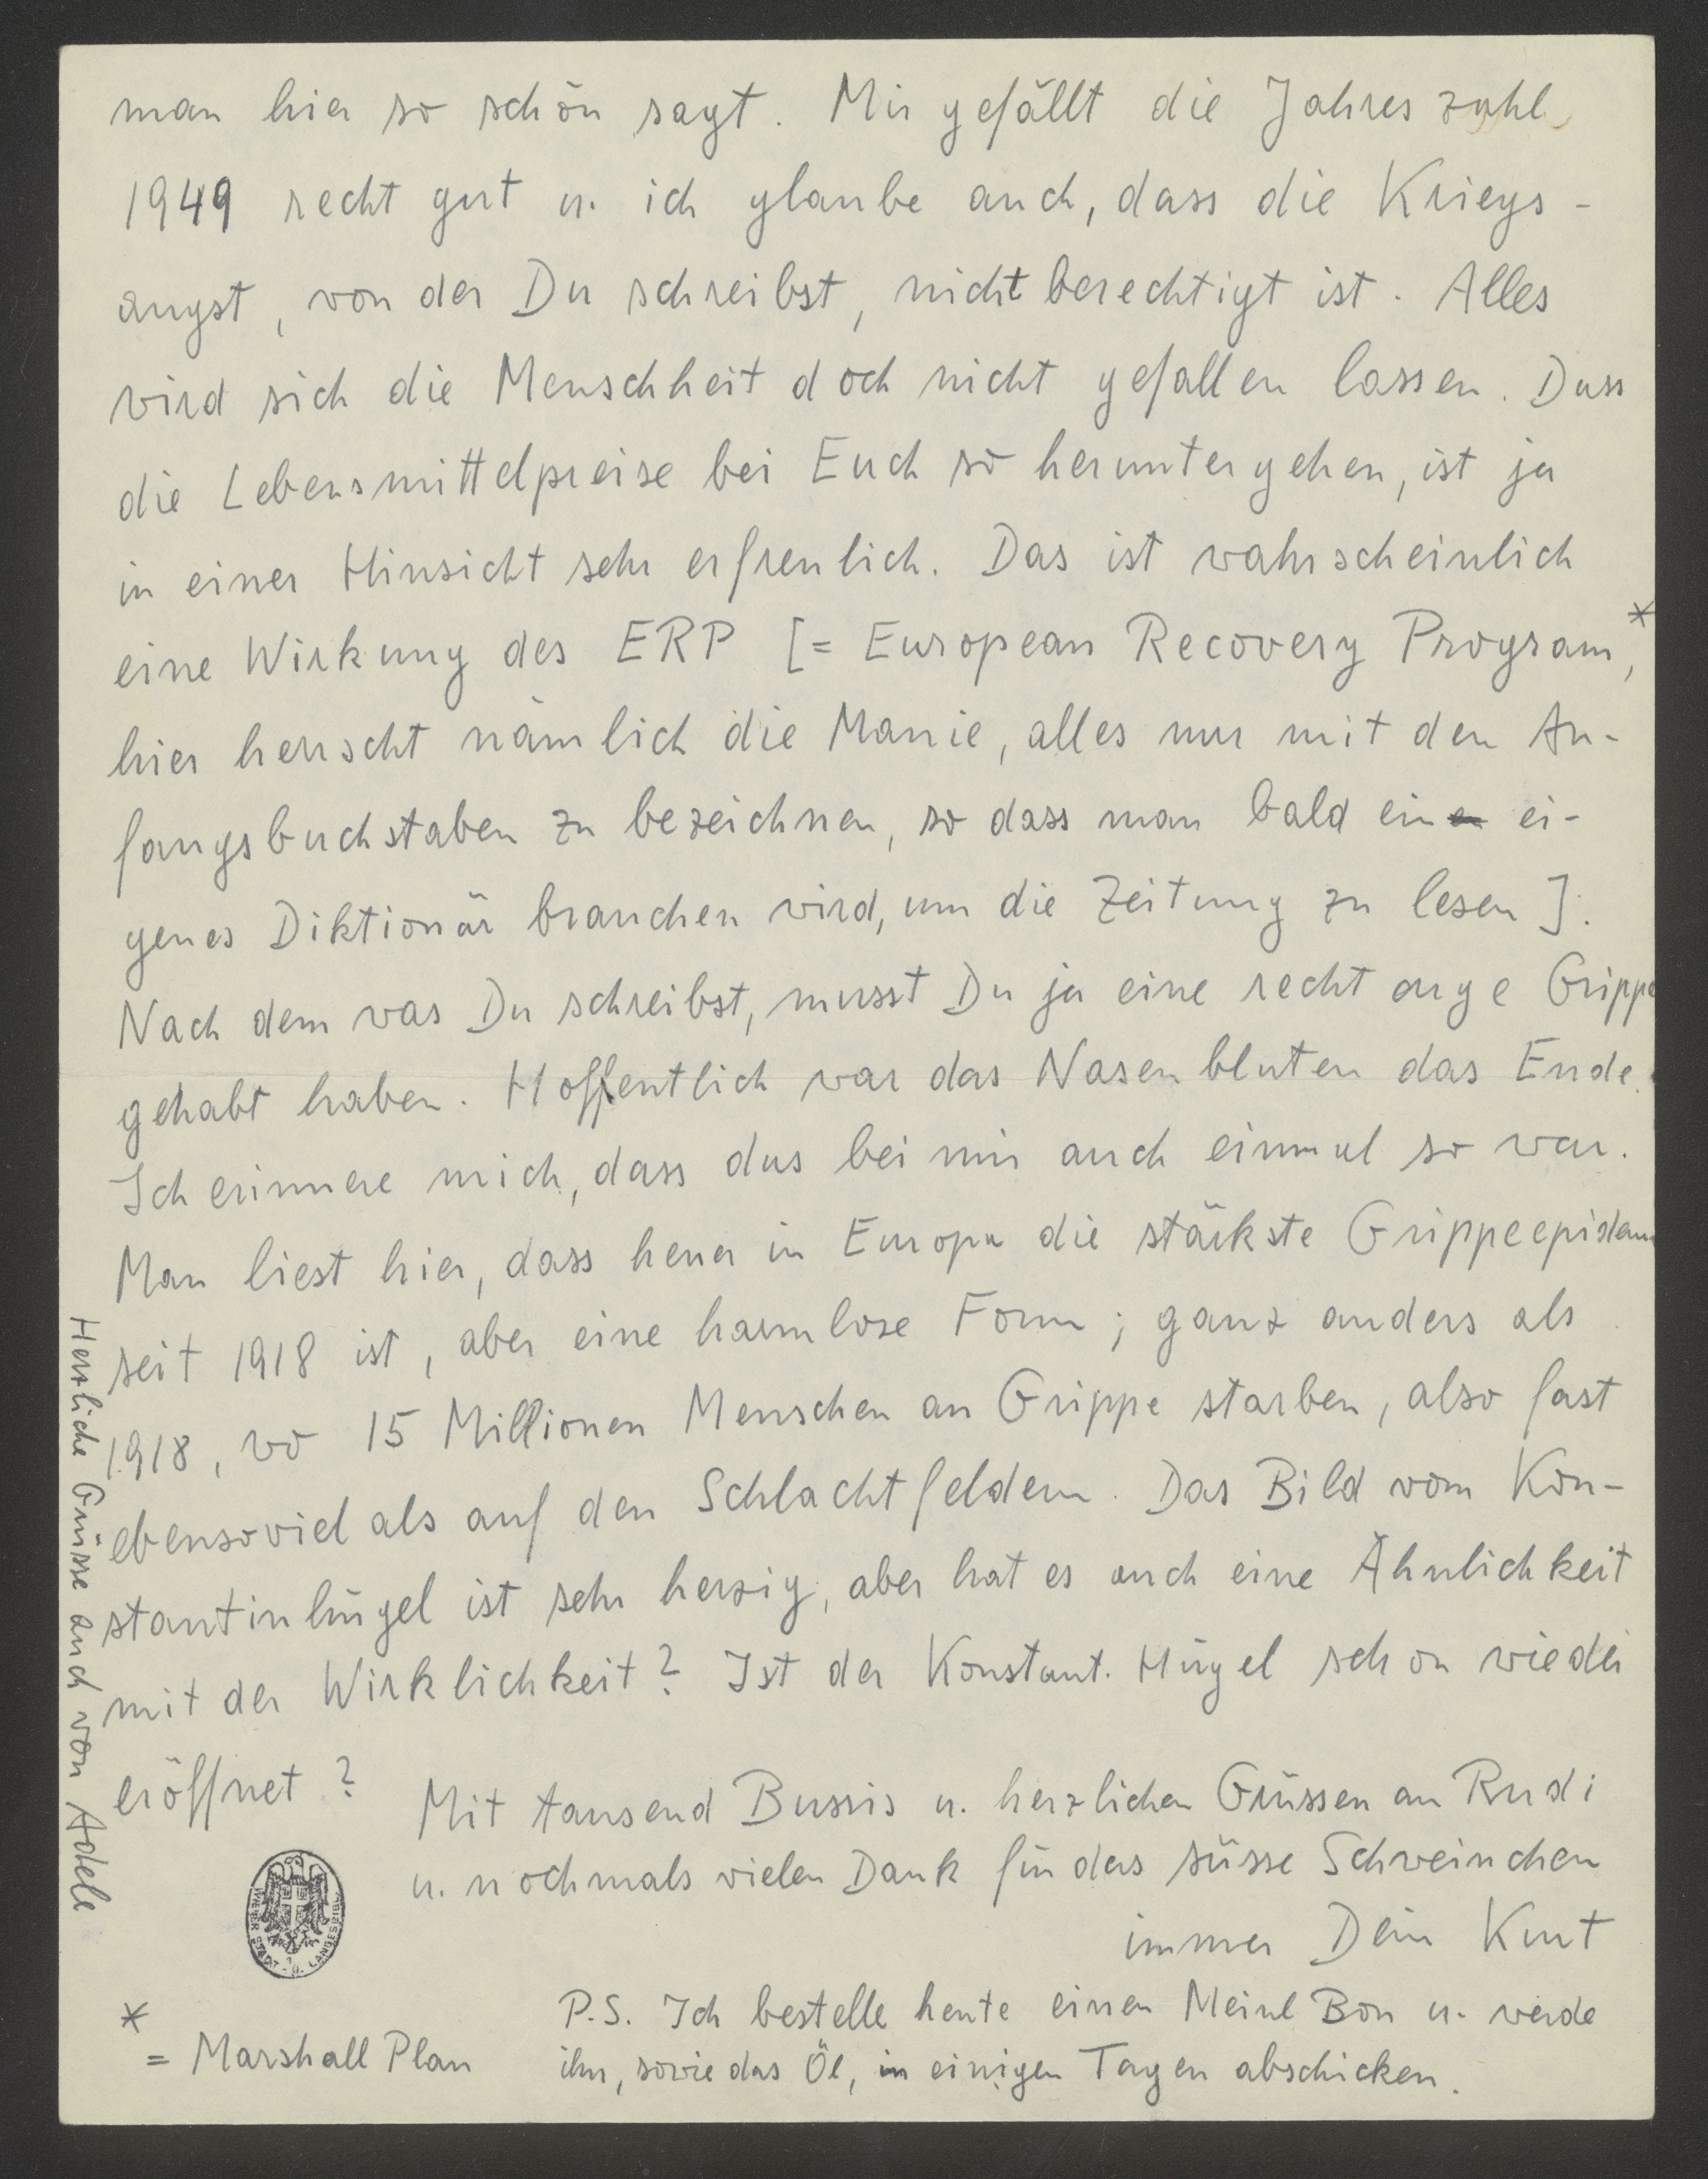 man hier so schön sagt. Mir gefällt die Jahreszahl
1949 recht gut u. ich glaube auch, dass die Kriegs-
angst, von der Du schreibst, nicht berechtigt ist. Alles
wird sich die Menschheit doch nicht gefallen lassen. Dass
die Lebensmittelpreise bei Euch so heruntergehen, ist ja
in einer Hinsicht sehr erfreulich. Das ist wahrscheinlich
eine Wirkung des ERP [= European Recovery Program*,
hier herrscht nämlich die Manie, alles nur mit den An-
fangsbuchstaben zu bezeichnen, so dass man bald ein ei-
genes Diktionär brauchen wird, um die Zeitung zu lesen].
Nach dem was Du schreibst, musst Du ja eine recht arge Grippe
gehabt haben. Hoffentlich war das Nasenbluten das Ende.
Ich erinnere mich, dass das bei mir auch einmal so war.
Man liest hier, dass heuer in Europa die stärkste Grippeepidem
seit 1918 ist, aber eine harmlose Form; ganz anders als
1918, wo 15 Millionen Menschen an Grippe starben, also fast
ebensoviel als auf den Schlachtfeldern. Das Bild vom Kon-
stantinhügel ist sehr herzig, aber hat es auch eine Ähnlichkeit
mit der Wirklichkeit? Ist der Konstant. Hügel schon wieder
eröffnet?
Mit tausend Bussis u. herzlichen Grüssen an Rudi
u. nochmals vielen Dank für das süsse Schweinchen
immer Dein Kurt
P.S. Ich bestelle heute einen Meinl Bon u. werde
ihn, sowie das Öl, in einigen Tagen abschicken.
* = Marshall Plan
Herzliche Grüsse auch von Adele
WIENER STADT- U. LANDESBIBL